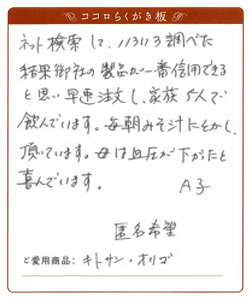 ココロらくがき板
ネット検索して、いろいろ調べた
結果御社の製品が一番信用できる
と思い早速注文し、家族5人で
飲んでいます。毎朝みそ汁にとかし、
頂いています。母は血圧が下がったと
喜んでいます。 A子
匿名希望
ご愛用商品: キトサン・オリゴ